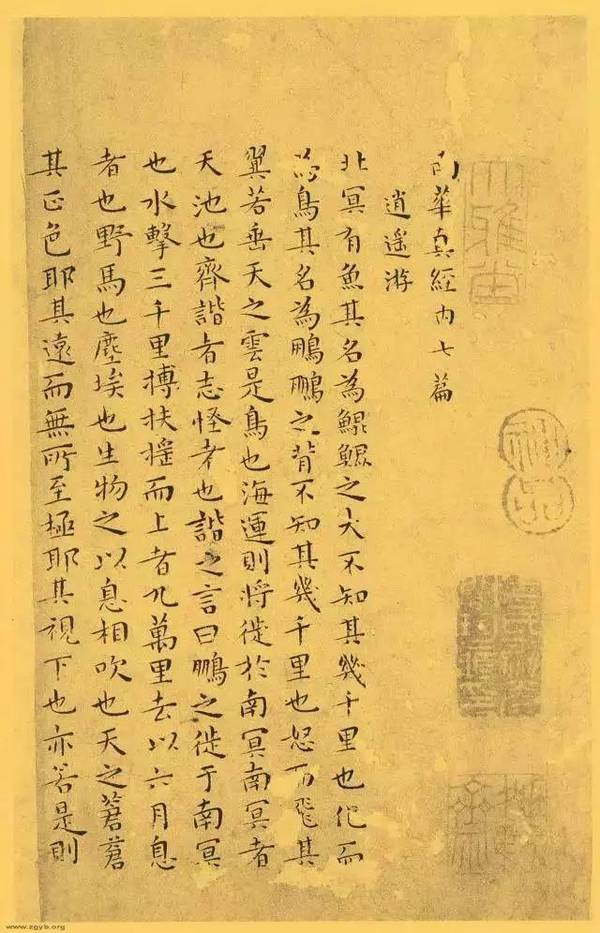 南華真經内七篇
逍遥游
北冥有魚其名為鯤鯤之大不知其幾千里也化而
為鳥其名為鵬鵬之背不知其幾千里也怒而飛其
翼若垂天之雲是鳥也海運則將徙於南冥南冥者
天池也齊諧者志怪者也諧之言曰鵬之徙于南冥
也水擊三千里搏扶摇而上者九萬里去以六月息
者也野馬也塵埃也生物之以息相吹也天之蒼蒼
其正色耶其遠而無所至極耶其視下也亦若是則
神品
www.zgyb.org